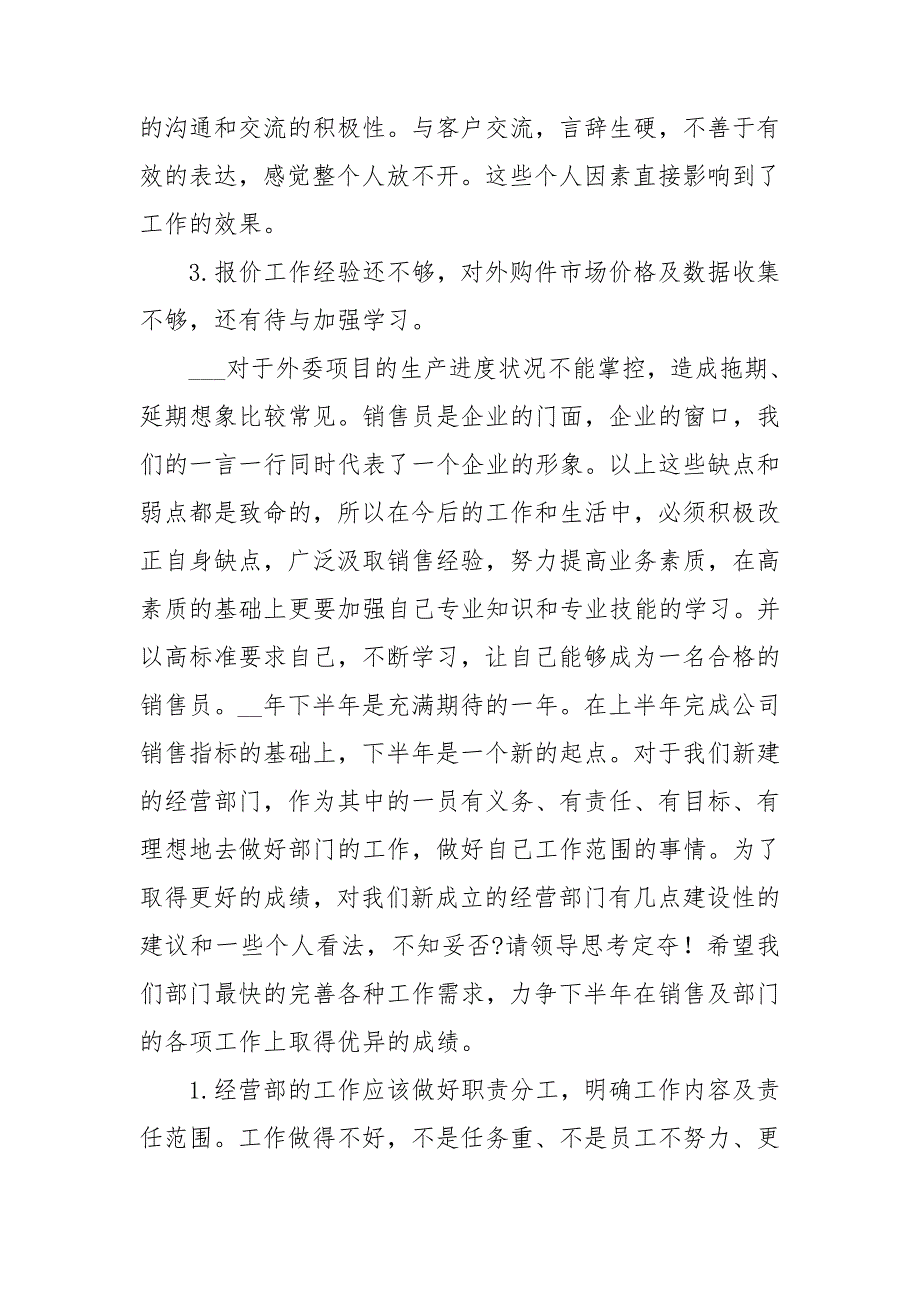 的沟通和交流的积极性。与客户交流，言辞生硬，不善于有
效的表达，感觉整个人放不开。这些个人因素直接影响到了
工作的效果。
3.报价工作经验还不够，对外购件市场价格及数据收集
不够，还有待与加强学习。
___对于外委项目的生产进度状况不能掌控，造成拖期、
延期想象比较常见。销售员是企业的门面，企业的窗口，我
们的一言一行同时代表了一个企业的形象。以上这些缺点和
弱点都是致命的，所以在今后的工作和生活中，必须积极改
正自身缺点，广泛汲取销售经验，努力提高业务素质，在高
素质的基础上更要加强自己专业知识和专业技能的学习。并
以高标准要求自己，不断学习，让自己能够成为一名合格的
销售员。__年下半年是充满期待的一年。在上半年完成公司
销售指标的基础上，下半年是一个新的起点。对于我们新建
的经营部门，作为其中的一员有义务、有责任、有目标、有
理想地去做好部门的工作，做好自己工作范围的事情。为了
取得更好的成绩，对我们新成立的经营部门有几点建设性的
建议和一些个人看法，不知妥否?请领导思考定夺！希望我
们部门最快的完善各种工作需求，力争下半年在销售及部门
的各项工作上取得优异的成绩。
1.经营部的工作应该做好职责分工，明确工作内容及责
任范围。工作做得不好，不是任务重、不是员工不努力、更